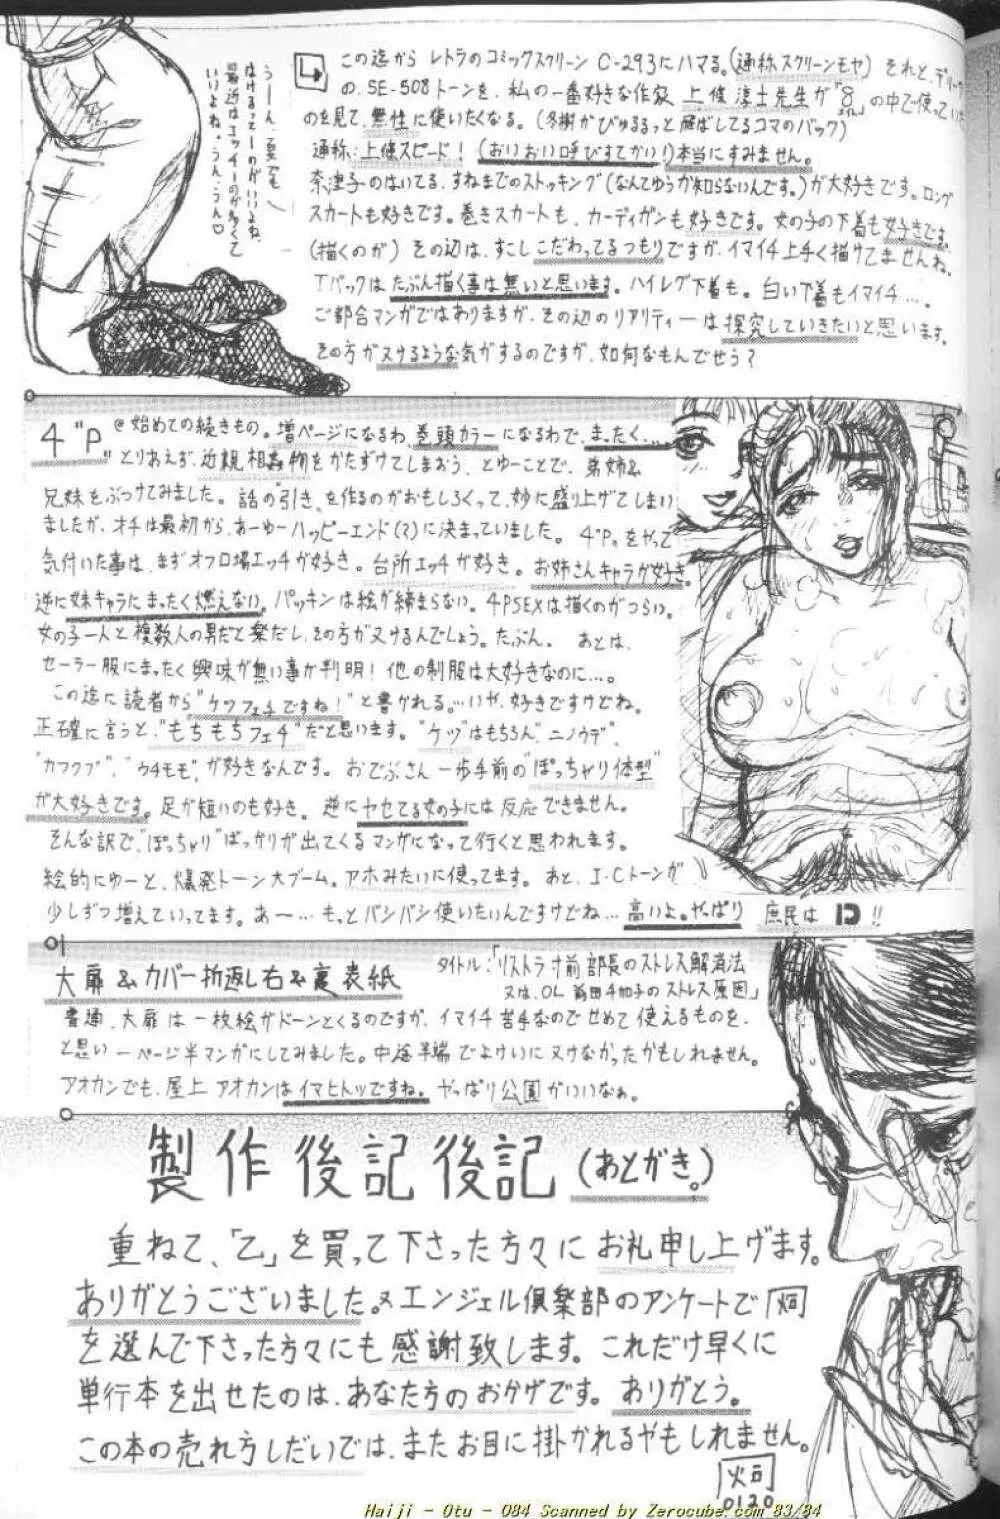 この迄から レトラのコミックスクリーン C-293にハマる。(通称スクリーンモヤ) それと、デリータ
の、SE-508トーンを、私の一番好きな作家 上條淳士先生が「8」の中で使っていた
のを見て、無性に使いたくなる。(冬樹がびゅるるっと 飛ばしてるコマのバック)
通称、上條スピード! (おいおい呼びすてかい!)本当にすみません。
奈津子のはいてる、すねまでのストッキング(なんてゆうか知らないんです。)が大好きです。ロング
スカートも好きです。巻きスカートも、カーディガンも好きです。女の子の下着も好きです。
(描くのが) その辺は、すこしこだわってるつもりですが、イマイチ上手く描けてませんね。
Tバックは たぶん描く事は無いと思います。ハイレグ下着も。白い下着もイマイチ…。
ご都合マンガではありますが、その辺のリアリティーは探究していきたいと思います。
その方がヌけるような気がするのですが、如何なもんでせう?
うーん、夏でも
はけるってーのがいいよね、
最近はエッチーのが多くて
いいよね。うん、うん♡
4"P" @始めての続きもの。増ページになるわ、巻頭カラーになるわで、まったく…
とりあえず、近親相姦物をかたずけてしまおう、とゆーことで、弟姉&
兄妹をぶつけてみました。話の"引き"を作るのがおもしろくって、妙に盛り上げてしまい
ましたが、オチは最初から、あーゆーハッピーエンド(?)に決まっていました。 4"P"をやって
気付いた事は、まずオフロ場エッチが好き。台所エッチが好き。お姉さんキャラが好き。
逆に妹キャラにまったく燃えない。パッキンは絵が締まらない。4PSEXは描くのがつらい。
女の子一人と複数人の男だと楽だし、その方がヌけるんでしょう。たぶん。 あとは、
セーラー服にまったく興味が無い事が判明! 他の制服は大好きなのに…。
この迄に読者から"ケツフェチですね!"と書かれる。…いや、好きですけどね。
正確に言うと、"もちもちフェチ"だと思います。"ケツ"はもちろん、"ニノウデ"、
"カフクブ"、"ウチモモ"、が好きなんです。おでぶさん一歩手前の"ぽっちゃり体型"
が大好きです。足が短いのも好き。逆にヤセてる女の子には反応できません。
そんな訳で、"ぽっちゃり"ばっかりが出てくるマンガになって行くと思われます。
絵的にゆーと、爆発トーン大ブーム。アホみたいに使ってます。あと、I・Cトーンが
少しずつ増えていってます。あー…もっとバシバシ使いたいんですけどね…高いよ。やっぱり 庶民は !!
01
大扉&カバー折返し右&裏表紙
タイトル:「リストラ寸前部長のストレス解消法
又は、OL 前田千加子のストレス原因」
普通、大扉は一枚絵がドーンとくるのですが、イマイチ苦手なのでせめて使えるものを、
と思い一ページ半マンガにしてみました。中途半端でよけいにヌけなかったかもしれません。
アオカンでも、屋上アオカンはイマヒトツですね。やっぱり公園がいいなぁ。
製作後記後記(あとがき。)
重ねて、「乙」を買って下さった方々にお礼申し上げます。
ありがとうございました。又エンジェル倶楽部のアンケートで
を選んで下さった方々にも感謝致します。これだけ早くに
単行本を出せたのは、あなた方のおかげです。ありがとう。
この本の売れ方しだいでは、またお目に掛かれるやもしれません。
0120
Haiji - Otu - 084 Scanned by Zerocube.com 83/84